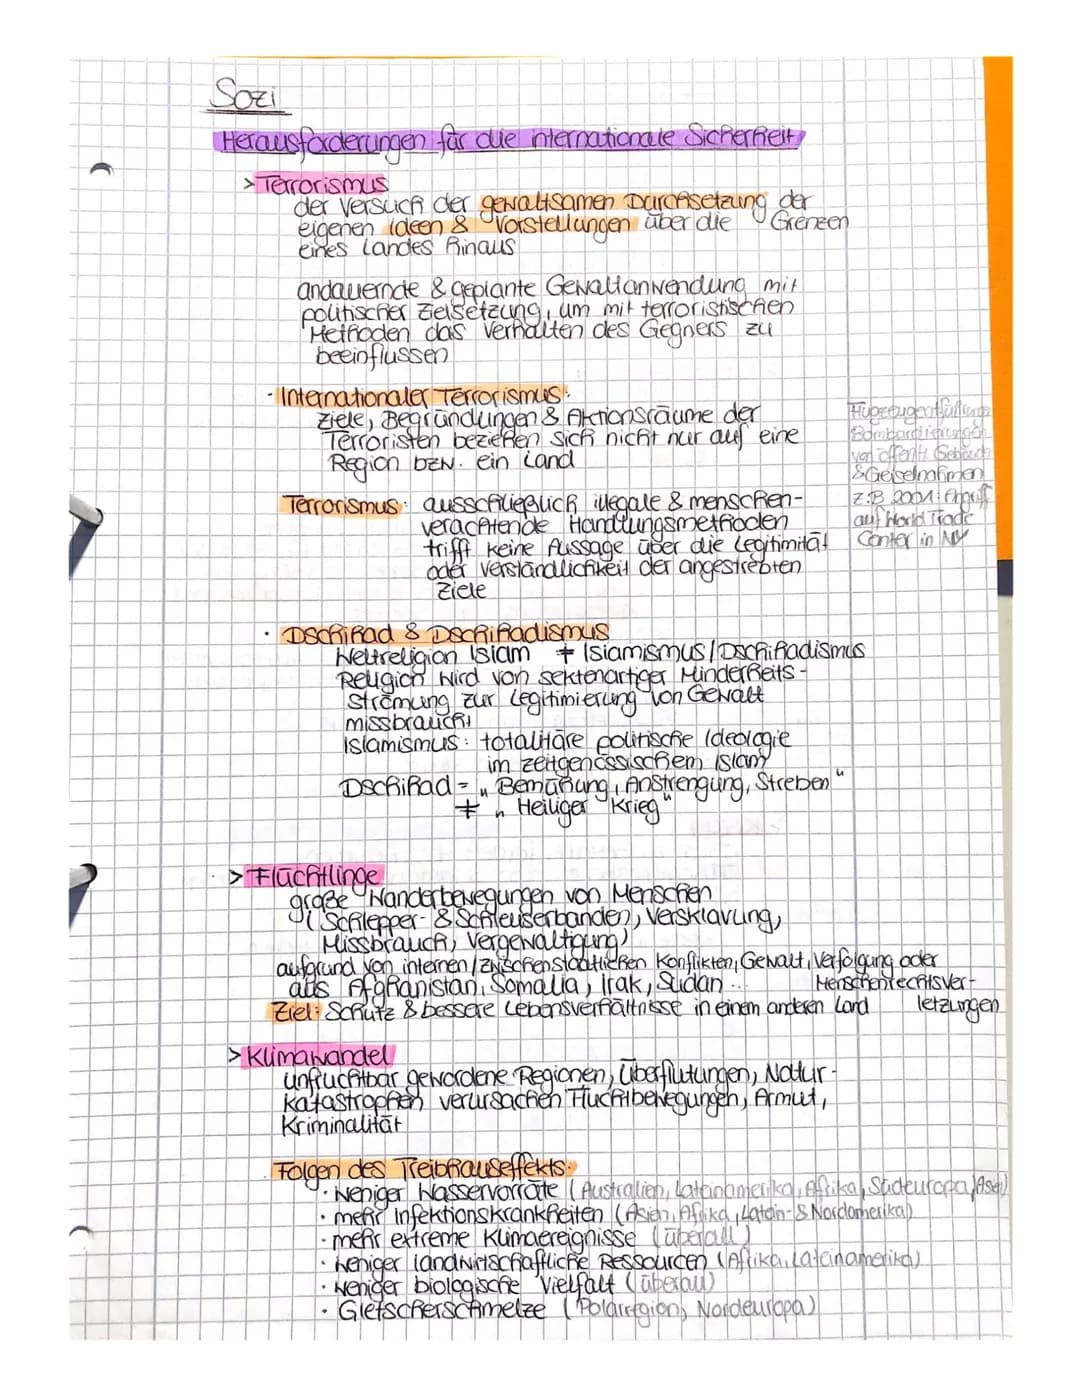 Sozi
Herausforderungen für die internationale Sicherheit
> Terrorismus
der Versuch der gewaltsamen Durchsetzung der
eigenen Ideen & Vorstellungen über die Grenzen
eines Landes hinaus
andauernde & geplante Gewaltanwendung mit
politischer Zielsetzung, um mit terroristischen
Methoden das Verhalten des Gegners zu
beeinflussen
· Internationaler Terrorismus:
Ziele, Begründungen & Aktionsräume der
Terroristen beziehen sich nicht nur auf eine
Region bzw. ein Land
Flugzeugentführung
Bombardierungen
von öffentl. Gebäud
& Geiselnahmen
z.B 2001: Angriff
auf World Trade
Center in NY
Terrorismus: ausschließlich illegale & menschen-
verachtende Handlungsmethoden
trifft keine Aussage über die Legitimität
oder Verständlichkeit der angestrebten
Ziele
· Dschihad & Dschihadismus
Weltreligion Islam ≠ Islamismus/Dschihadismus
Religion wird von sektenartiger Minderheits-
strömung zur Legitimierung von Gewalt
missbraucht
Islamismus: totalitäre politische Ideologie
im zeitgenössischem Islam
Dschihad = „Bemühung, Anstrengung, Streben“
≠ „Heiliger Krieg“
> Flüchtlinge
große Wanderbewegungen von Menschen
(Schlepper- & Schleuserbanden, Versklavung,
Missbrauch, Vergewaltigung)
aufgrund von internen/zwischenstaatlichen Konflikten, Gewalt, Verfolgung oder
aus Afghanistan, Somalia, Irak, Sudan... Menschenrechtsver-
Ziel: Schutz & bessere Lebensverhältnisse in einem anderen Land letzungen
> Klimawandel
unfruchtbar gewordene Regionen, Überflutungen, Natur-
katastrophen verursachen Fluchtbewegungen, Armut,
Kriminalität
Folgen des Treibhauseffekts:
· weniger Wasservorräte (Australien, Lateinamerika, Afrika, Südeuropa, Asien)
· mehr Infektionskrankheiten (Asien, Afrika, Latein- & Nordamerika)
· mehr extreme Klimaereignisse (überall)
· weniger landwirtschaftliche Ressourcen (Afrika, Lateinamerika)
· weniger biologische Vielfalt (überall)
· Gletscherschmelze (Polarregion, Nordeuropa)